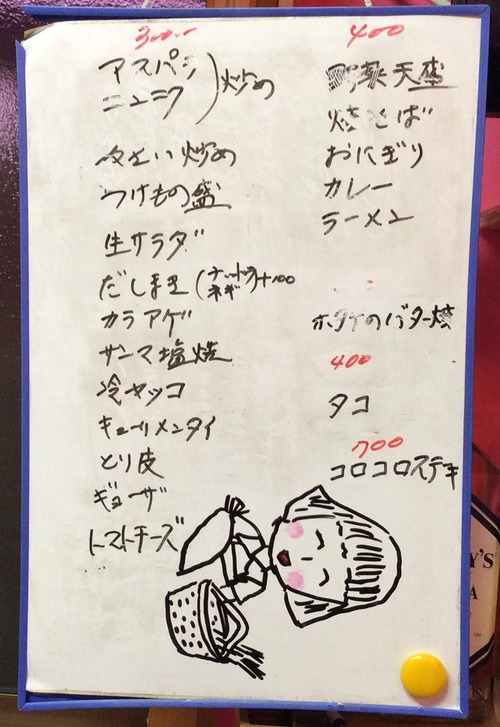 300
アスパラ
ニンニク
炒め
炒め
つけもの盛
生サラダ
だしまき(ナットウ ネギ)+100
カラアゲ
サンマ塩焼
冷ヤッコ
キューリメンタイ
とり皮
ギョーザ
トマトチーズ
400
野菜天盛
焼そば
おにぎり
カレー
ラーメン
ホタテのバター焼
400
タコ
700
コロコロステキ
Y'S
A